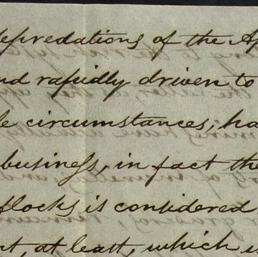 depredations of the Ap
nd rapidly driven to
le circumstances, ha
business, in fact the
flocks is considered
nt, at least, which is